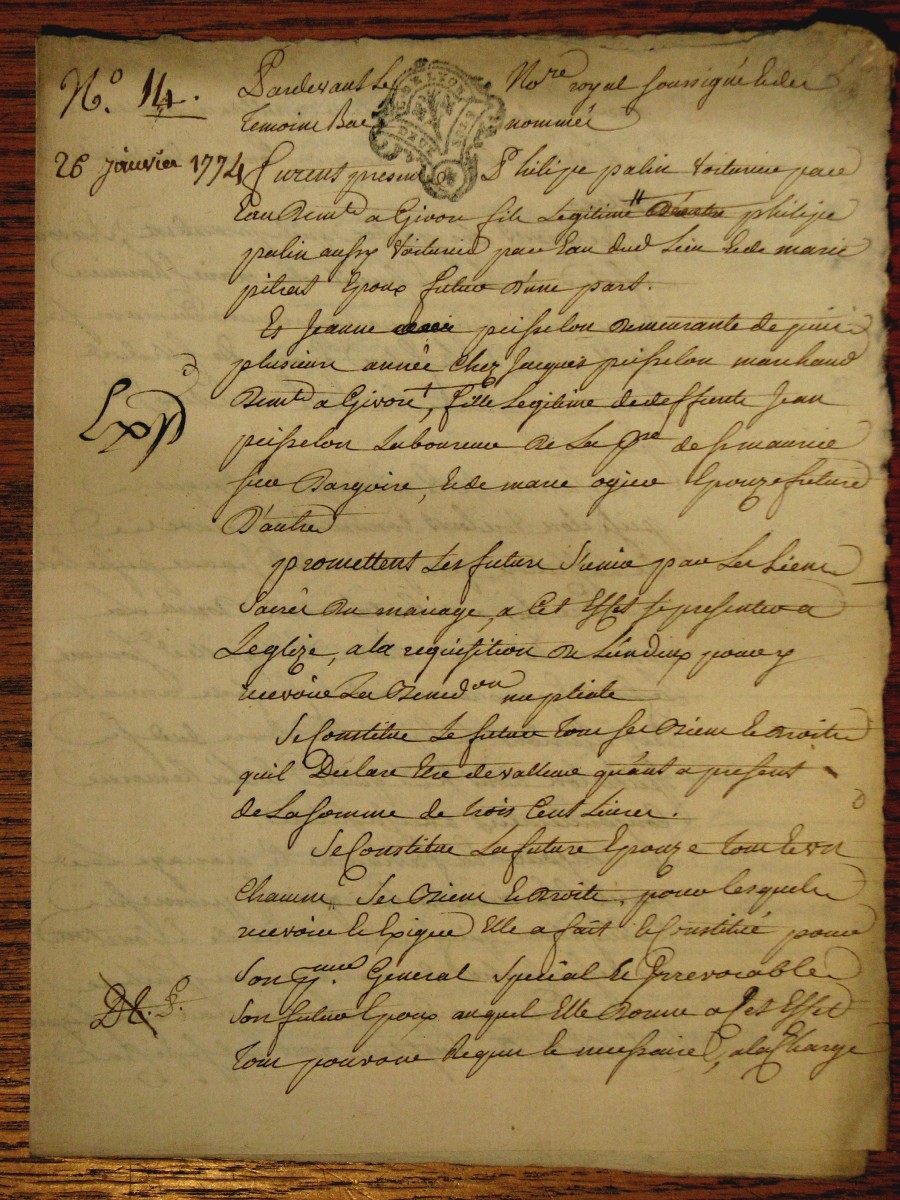 N.o 14.
26 janvier 1774
Pardevant Le No.re royal soussigné et des
temoins Bas nommés
furent presens Philipe palin Voiturier par
Eau Dem.t a Givors fils Legitime philipe
palin aussy Voiturier par Eau dud Lieu et de marie
pitrat Epoux futur D'une part.
Et Jeanne peisselon Demeurante depuis
plusieurs année Chez Jacques peisselon marchand
Dem.t a Givors, fille Legitime de deffunt Jean
peisselon Laboureur De La p.re de st maurice
sur Dargoire, et de marie ogier Epouze future
D'autre
promettent Les futurs s'unir par Les Liens
Sacrés Du mariage, a Cet Effet se presenter a
Leglize, a la requisition De L'un d'eux pour y
recevoir La Bened.on nuptiale
Se Constitue Le futur tous ses Biens et Droits
quil Declare Etre de valleur quant a present
de La somme de trois Cent Livres.
Se Constitue La future Epouze tous et un
Chacuns Ses Biens et Droits, pour lesquels
recevoir et Exiger Elle a fait et Constitué pour
Son General Special et Irrevocable
Son futur Epoux auquel Elle Donne a Cet Effet
tous pouvoirs Requis et necessaires, a la Charge